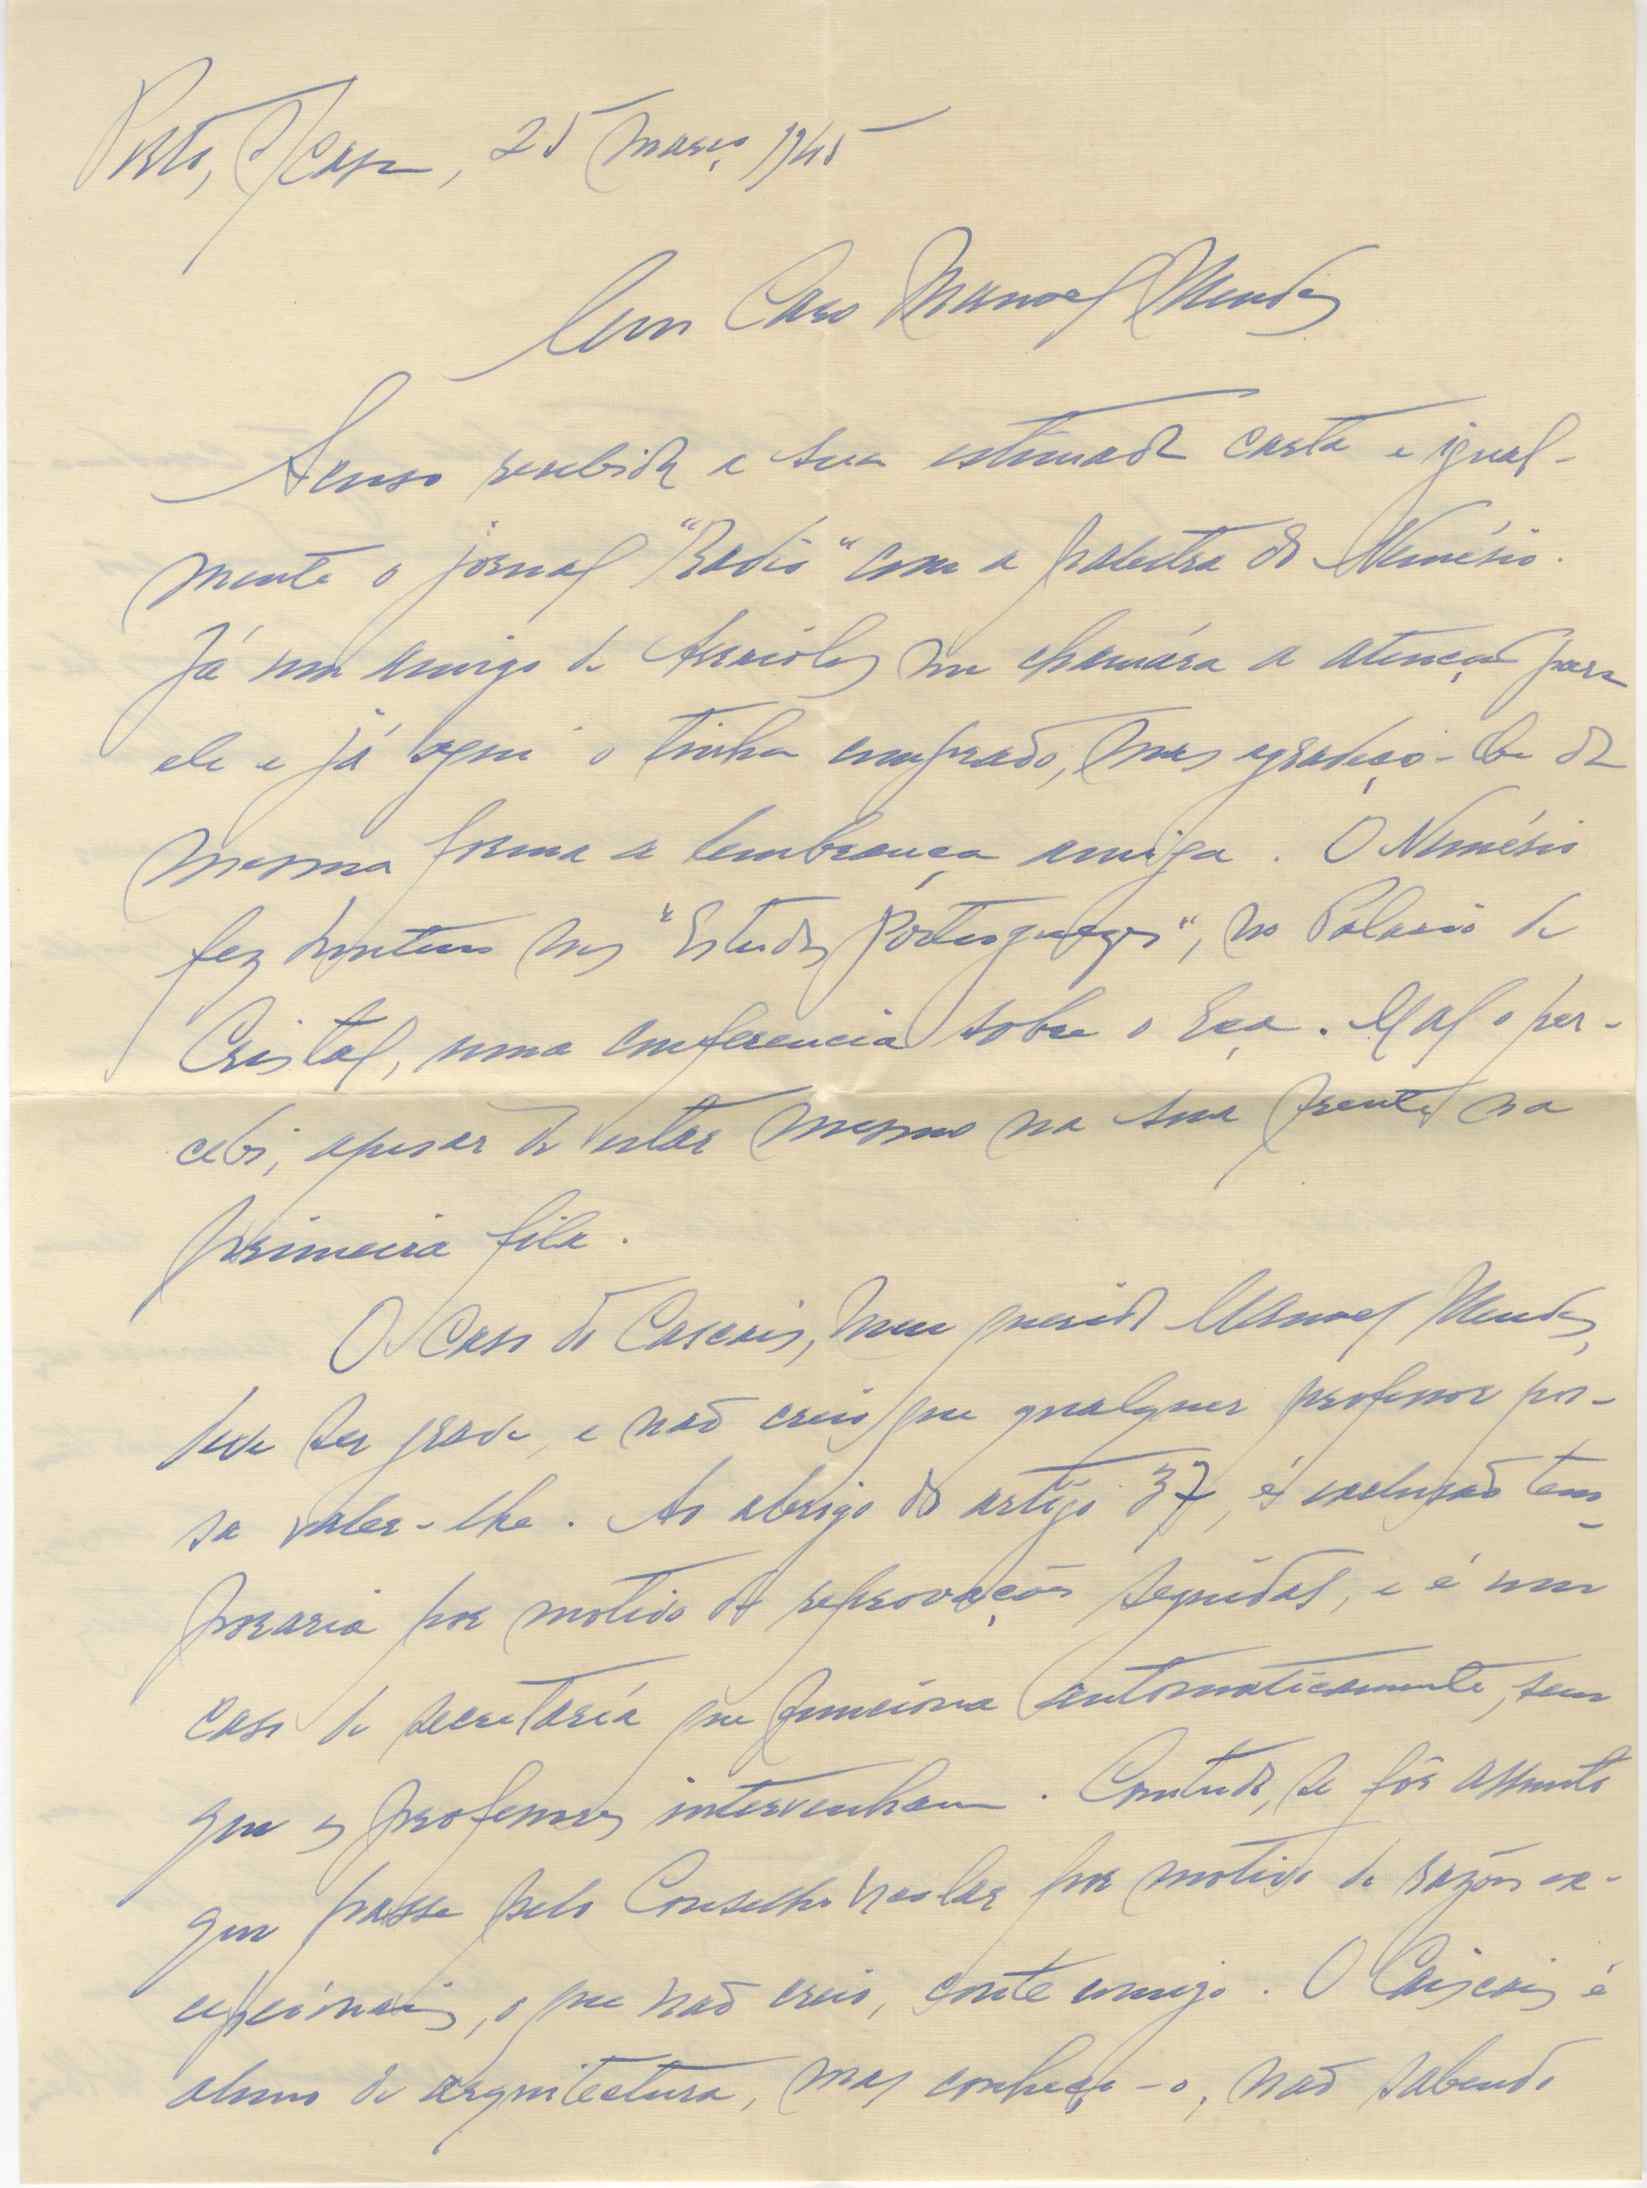 Porto, S/ Casa, 25 Março 1945
Meu Caro Manoel Mendes
Acuso recebida a sua estimada carta e igual-
mente o jornal "Radio" com a palestra do Nemésio.
Já um amigo de me chamára a atenção para
ele e já aqui o tinha comprado, mas agradeço-lhe da
mesma forma a lembrança amiga. O Nemésio
fez hontem nos "Estudos Portuguezes", no Palacio de
Cristal, uma conferencia sobre o Eça. Mal o per-
cebi, apesar de estar mesmo na sua frente na
primeira fila.
O caso do Cascais, meu querido Manoel Mendes,
deve ser grave, e não creio que qualquer professor pos-
sa valer-lhe. Ao abrigo do artigo 37, é exclusão tem-
poraria por motivo de reprovações seguidas, e é um
caso de secretaría que funciona automaticamente, sem
que os professores intervenham. Comtudo, se fôr assunto
que passe pelo Conselho Escolar por motivo de razões ex-
cepcionais, o que não creio, conte comigo. O Cascais é
aluno de arquitectura, mas conheço-o, não sabendo